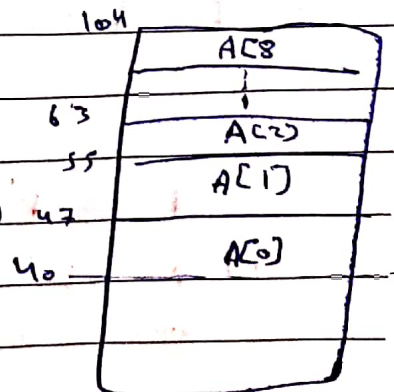 104
A[8
63
A[2]
55
A[1]
47
40
A[0]